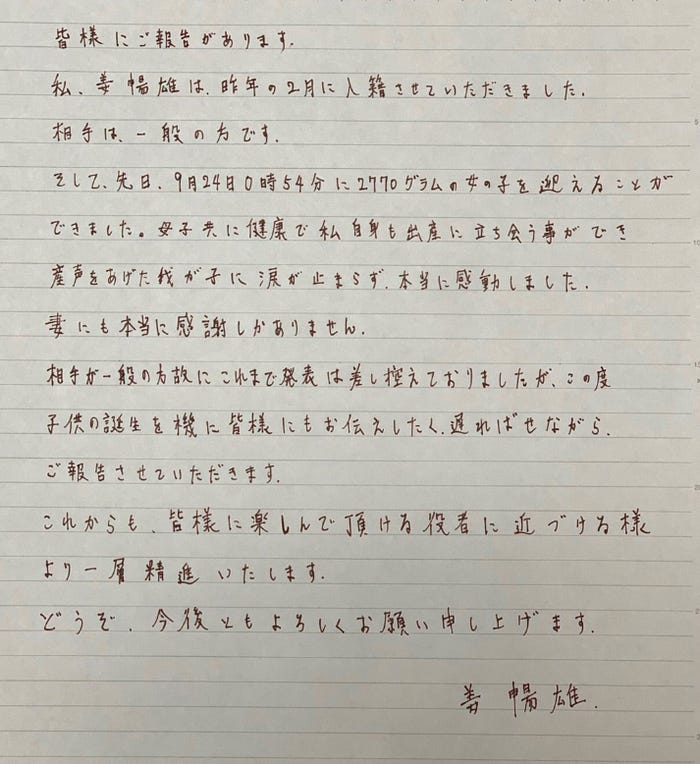 皆様にご報告があります.
私、姜 暢雄は、昨年の2月に入籍させていただきました.
相手は、一般の方です.
そして、先日、9月24日0時54分に2770グラムの女の子を迎えることが
できました。母子共に健康で私自身も出産に立ち会う事ができ
産声をあげた我が子に涙が止まらず、本当に感動しました.
妻にも本当に感謝しかありません.
相手が一般の方故にこれまで発表は差し控えておりましたが、この度
子供の誕生を機に皆様にもお伝えしたく、遅ればせながら、
ご報告させていただきます.
これからも、皆様に楽しんで頂ける役者に近づける様
より一層精進いたします.
どうぞ、今後ともよろしくお願い申し上げます.
姜 暢雄.